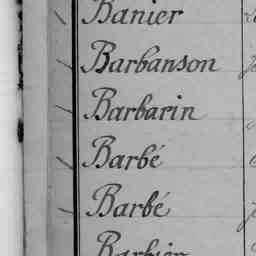 Banier
Barbanson
Barbarin
Barbé
Barbé
Barbier